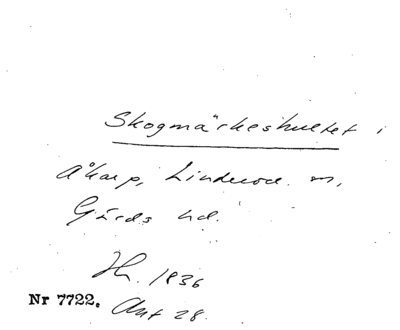 Skogmärkeshultet i
Åkarp, Linderöd. sn,
Gärds hd.
Hr. 1836
Nr 7722. Akt 28.